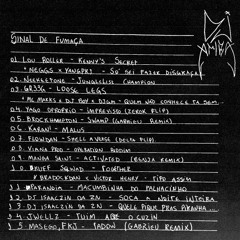 SINAL DE FUMAÇA
01 LOU ROLLER - KENNY'S SECRET
* NEGGS × YANGPRJ - SÓ SEI FAZER DISGRAÇA
02 NECKLETONE - JUNGELISS CHAMPION
03 GR33G - LOOSE LEGS
* MC MARKS × DJ BOY × DJGM - QUEM NÃO CONHECE TÁ SEM
04 YAGO OPRÓPRIO - IMPREVISTO (ZEROK FLIP)
05 BROCKHAMPTON - SWAMP (GABRIEU REMIX)
06 KARANI - MALUS
07 FLOWDAN - SHELL A VERSE (DELTA FLIP)
08 VINAA PRO - OPERATION RIDDIM
09 MANGA SAINT - ACTIVATED (REMIX)
10 RUFF SQWAD - TOGETHER
* BRADOCKDAN × VICTOR HENRY - TIPO ASSIM
11 PARANOIM - MACUMBINHA DO PALHACINHO
12 DJ ISAACZIN DA ZN - SOCA A NOITE INTEIRA
13 DJ ISAACZIN DA ZN - QUELE PIQUE PRAS PIRANHA
14 JWELLZ - TUIM O CUZIN
15 MASEGO, FKJ - TADOW (GABRIEU REMIX)